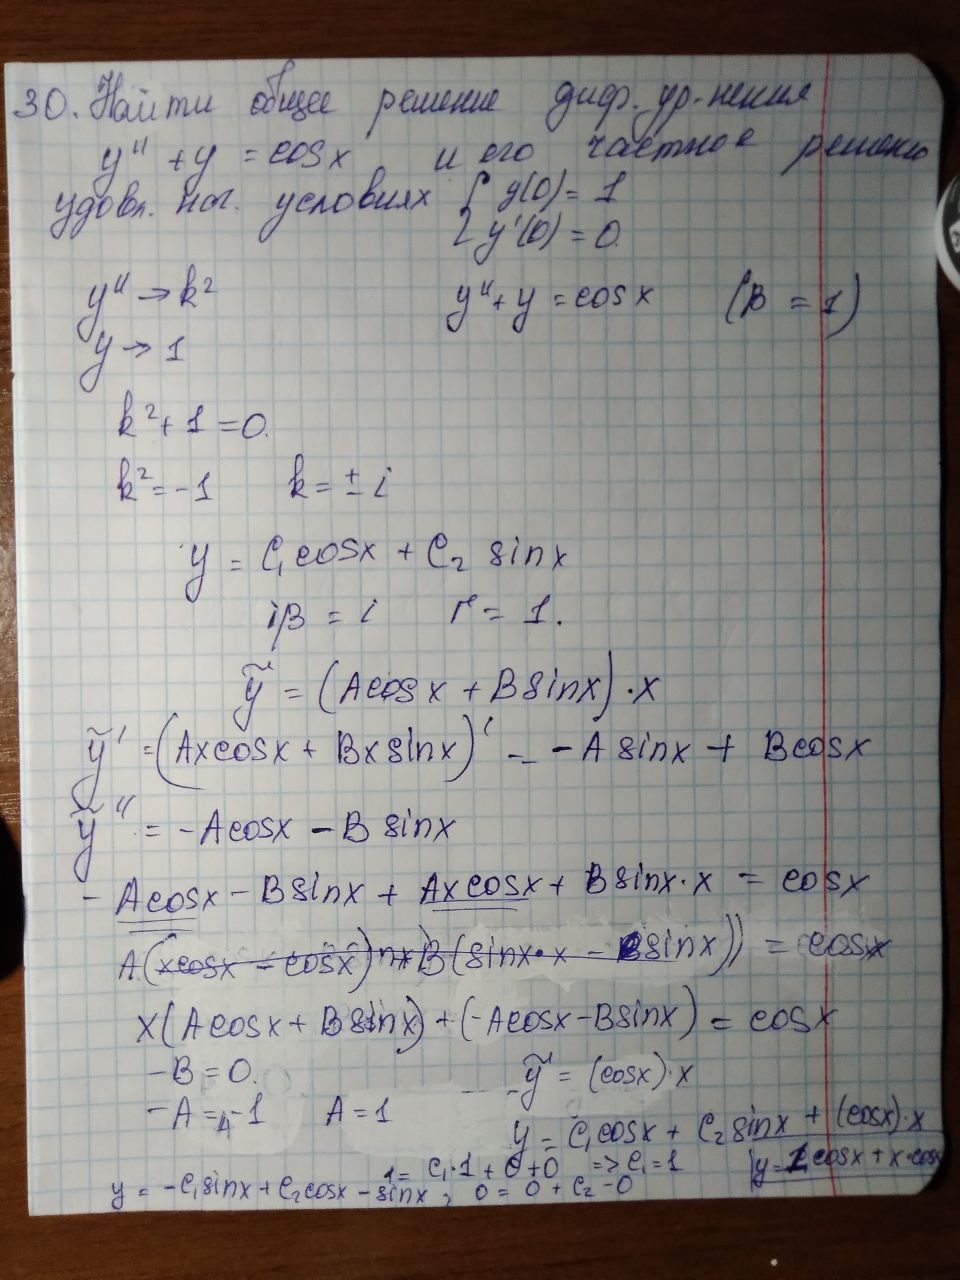 30. Найти общее решение диф. ур-нения
y'' + y = cosx и его частное решение
удовл. нач. условиях { y(0) = 1
y'(0) = 0.
y'' → k² y'' + y = cosx (B = 1)
y → 1
k² + 1 = 0.
k² = -1 k = ± i
y = C₁cosx + C₂ sinx
iβ = i r = 1.
ỹ = (Acosx + Bsinx)·x
ỹ' = (Axcosx + Bxsinx)' = -A sinx + Bcosx
ỹ'' = -Acosx - B sinx
- Acosx - Bsinx + Axcosx + Bsinx·x = cosx
A(xcosx - cosx) B(sinx·x - sinx)) = cosx
x(Acosx + Bsinx) + (-Acosx - Bsinx) = cosx
-B = 0. ỹ = (cosx)·x
-A = -1 A = 1
y = C₁cosx + C₂sinx + (cosx)·x
1 = C₁·1 + 0 + 0 => C₁ = 1 y = 1cosx + x·cosx
y = -C₁sinx + C₂cosx - sinx, 0 = 0 + C₂ - 0